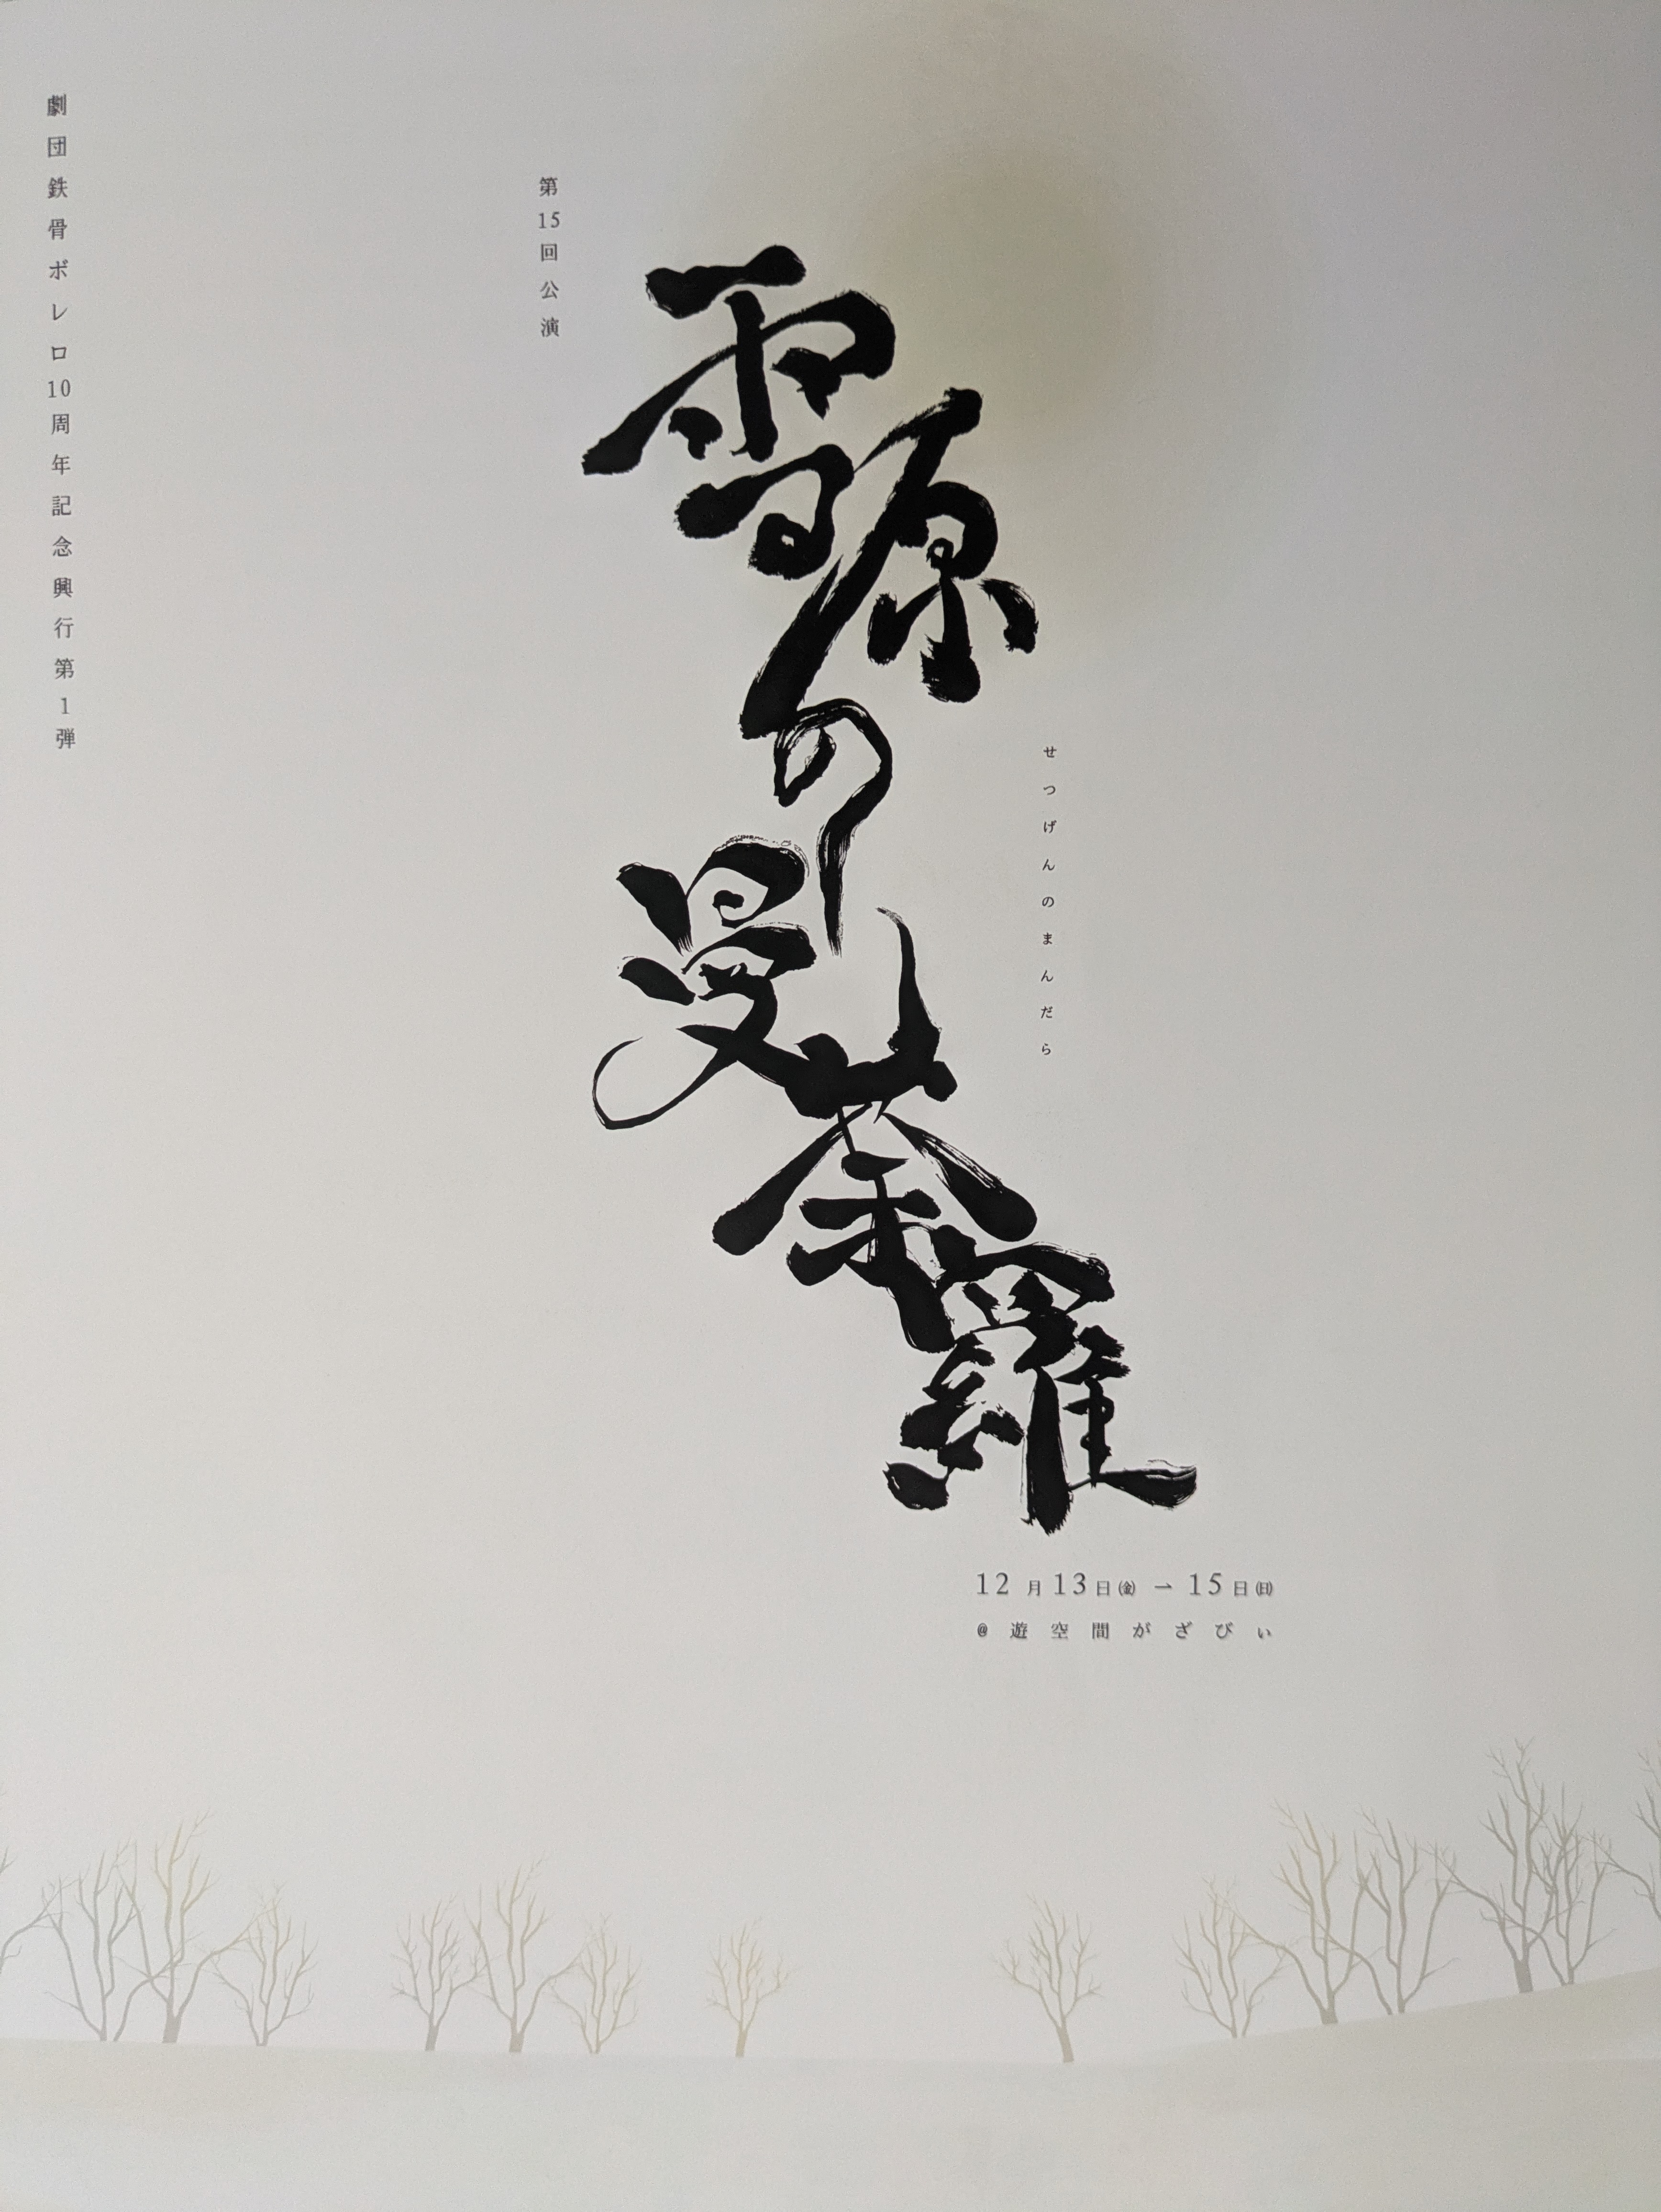 劇団鉄骨ボレロ10周年記念興行第1弾
第15回公演
雪原の曼荼羅
せつげんのまんだら
12月13日㈮⇀15日㈰
@遊空間がざびぃ